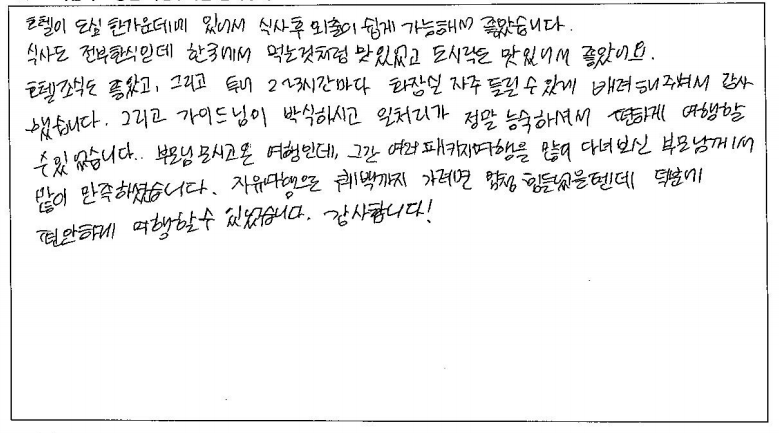 호텔이 도심 한가운데에 있어서 식사후 외출이 쉽게 가능해서 좋았습니다.
식사도 전부한식인데 한국에서 먹는것처럼 맛있었고 도시락도 맛있어서 좋았어요.
호텔조식도 좋았고, 그리고 투어 2~3시간마다 화장실 자주 들릴 수 있게 배려해주셔서 감사
했습니다. 그리고 가이드님이 박식하시고 일처리가 정말 능숙하셔서 편하게 여행할
수 있었습니다.. 부모님 모시고 온 여행인데, 그간 여러 패키지여행을 많이 다녀보신 부모님께서
많이 만족하셨습니다. 자유여행으로 퀘백까지 가려면 엄청 힘들었을텐데 덕분에
편안하게 여행할 수 있었습니다. 감사합니다!